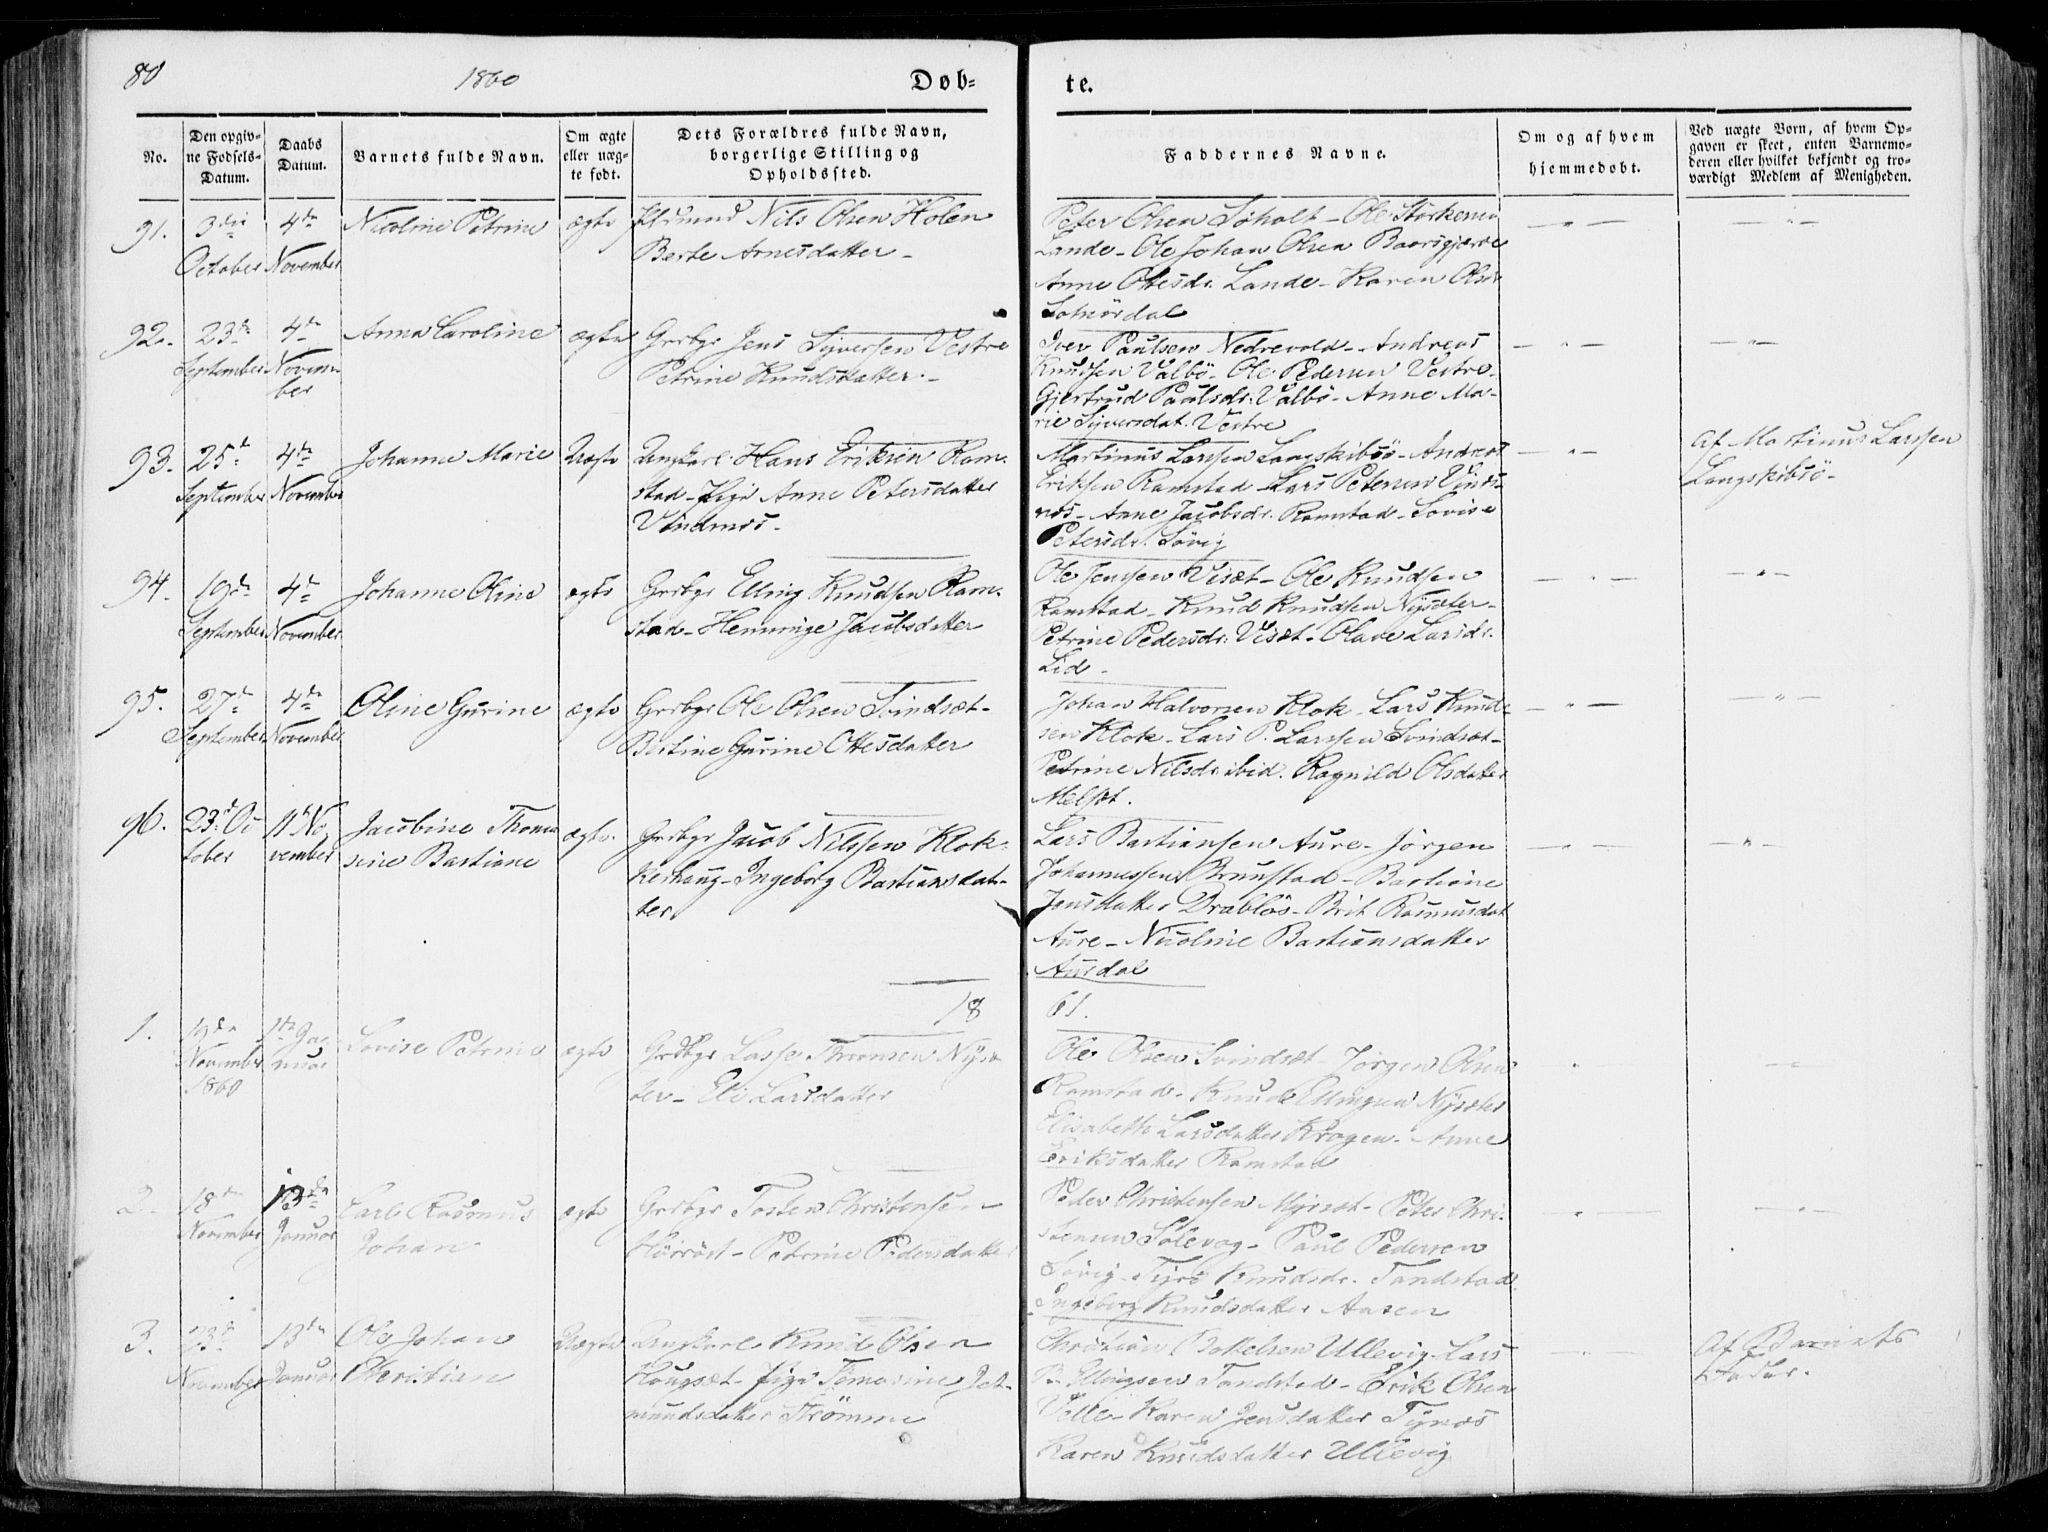 80
1860
Døb-
te.
No.
Den opgiv-
ne Fødsels-
Datum.
Daabs
Datum.
Barnets fulde Navn.
Om ægte
eller uæg-
te født.
Dets Forældres fulde Navn,
borgerlige Stilling og
Opholdssted.
Faddernes Navne.
Om og af hvem
hjemmedøbt.
Ved uægte Børn, af hvem Op-
gaven er skeet, enten Barnemo-
deren eller hvilket bekjendt og tro-
værdigt Medlem af Menigheden.
91.
3die
October
4de
November
Nicoline Petrine
ægte
Nils Olsen Holen
Berte Arnesdatter -
Peter Olsen Søholt - Ole Størkersen
Lande - Ole Johan Olsen
Anne Ottesdr. Lande - Karen Olsdr
92.
23de
September
4de
Novem-
ber
Anna Caroline
ægte
Grdbgr Jens Syversen Vestre
Petrine Knudsdatter. -
Iver Paulsen Nedrevold - Andreas
Knudsen Valbø - Ole Pedersen Vestre -
Gjertrud Paulsdr. Valbø - Anne Ma-
rie Syversdat. Vestre
93.
25de
September
4de
November
Johanne Marie
Uægte
Ungkarl Hans Eriksen Ram-
stad - Pige Anne Petersdatter
Vindsnæs -
Martinus Larssen Langskibsø - Andreas
Eriksen Ramstad - Lars Petersen Vinds-
næs - Anne Jacobsdr. Ramstad - Lovise
Petersdr. Søvig
Af Martinus Larssen
Langskibsø -
94.
19de
September
4de
November
Johanne Oline
ægte
Grdbgr Elling Knudsen Ram-
stad - Hemminge Jacobsdatter
Ole Jenssen Viset - Ole Knudsen
Ramstad - Knud Knudsen Nysæter -
Petrine Pedersdr. Viset - Olave Larsdr.
Lid -
95.
27de
September
4de
November
Oline Gurine
ægte
Grdbgr Ole Olsen Svindsæt -
Bertine Gurine Ottesdatter
Johan Halvorsen Klok - Lars Knud-
sen Klok - Lars P. Larssen Svindsæt -
Petrine Nilsdr. ibid. Ragnild Olsdatter
Melsæt.
96.
23de Oc
tober
11te No
vember
Jacobine Thoma
sine Bastiane
ægte
Grdbgr Jacob Nilssen Klok-
kerhaug - Ingeborg Bastiansdat-
ter
Lars Bastiansen Aure - Jørgen
Johannessen Brunstad - Bastiane
Jensdatter Drabløs - Brit Rasmusdat
Aure - Nicoline Bastiansdatter
Aurdal
18
61.
1.
19de
November
1860
1ste Ja-
nuar
Lovise Petrine
ægte
Grdbgr Lasse Thronsen Nysæ-
ter - Eli Larsdatter
Ole Olsen Svindsæt - Jørgen Olsen
Ramstad - Knud Ellingsen Nysæter
Elisabeth Larsdatter Kragen - Anne
Eriksdatter Ramstad
2.
18de
November
13de
Januar
Carl Rasmus
Johan
ægte
Grdbgr Tosten Christensen -
Petrine Pedersdatter
Peder Christensen Myrsæt - Peter Chri-
stensen Solevog - Paul Pedersen
Søvig - Knudsdr. Tandstad
Ingeborg Knudsdatter Aasen
3.
23de
November
13de
Januar
Ole Johan
Christian
Uægte
Ungkarl Knud Olsen
Haugsæt - Pige Tomasine Jet-
mundsdatter Strømme
Christian Ullevig - Lars
P. Ellingsen Tandstad - Erik Olsen
Velle - Karen Jensdatter Tynæs
Karen Knudsdatter Ullevig
Af Barnets
Fader.